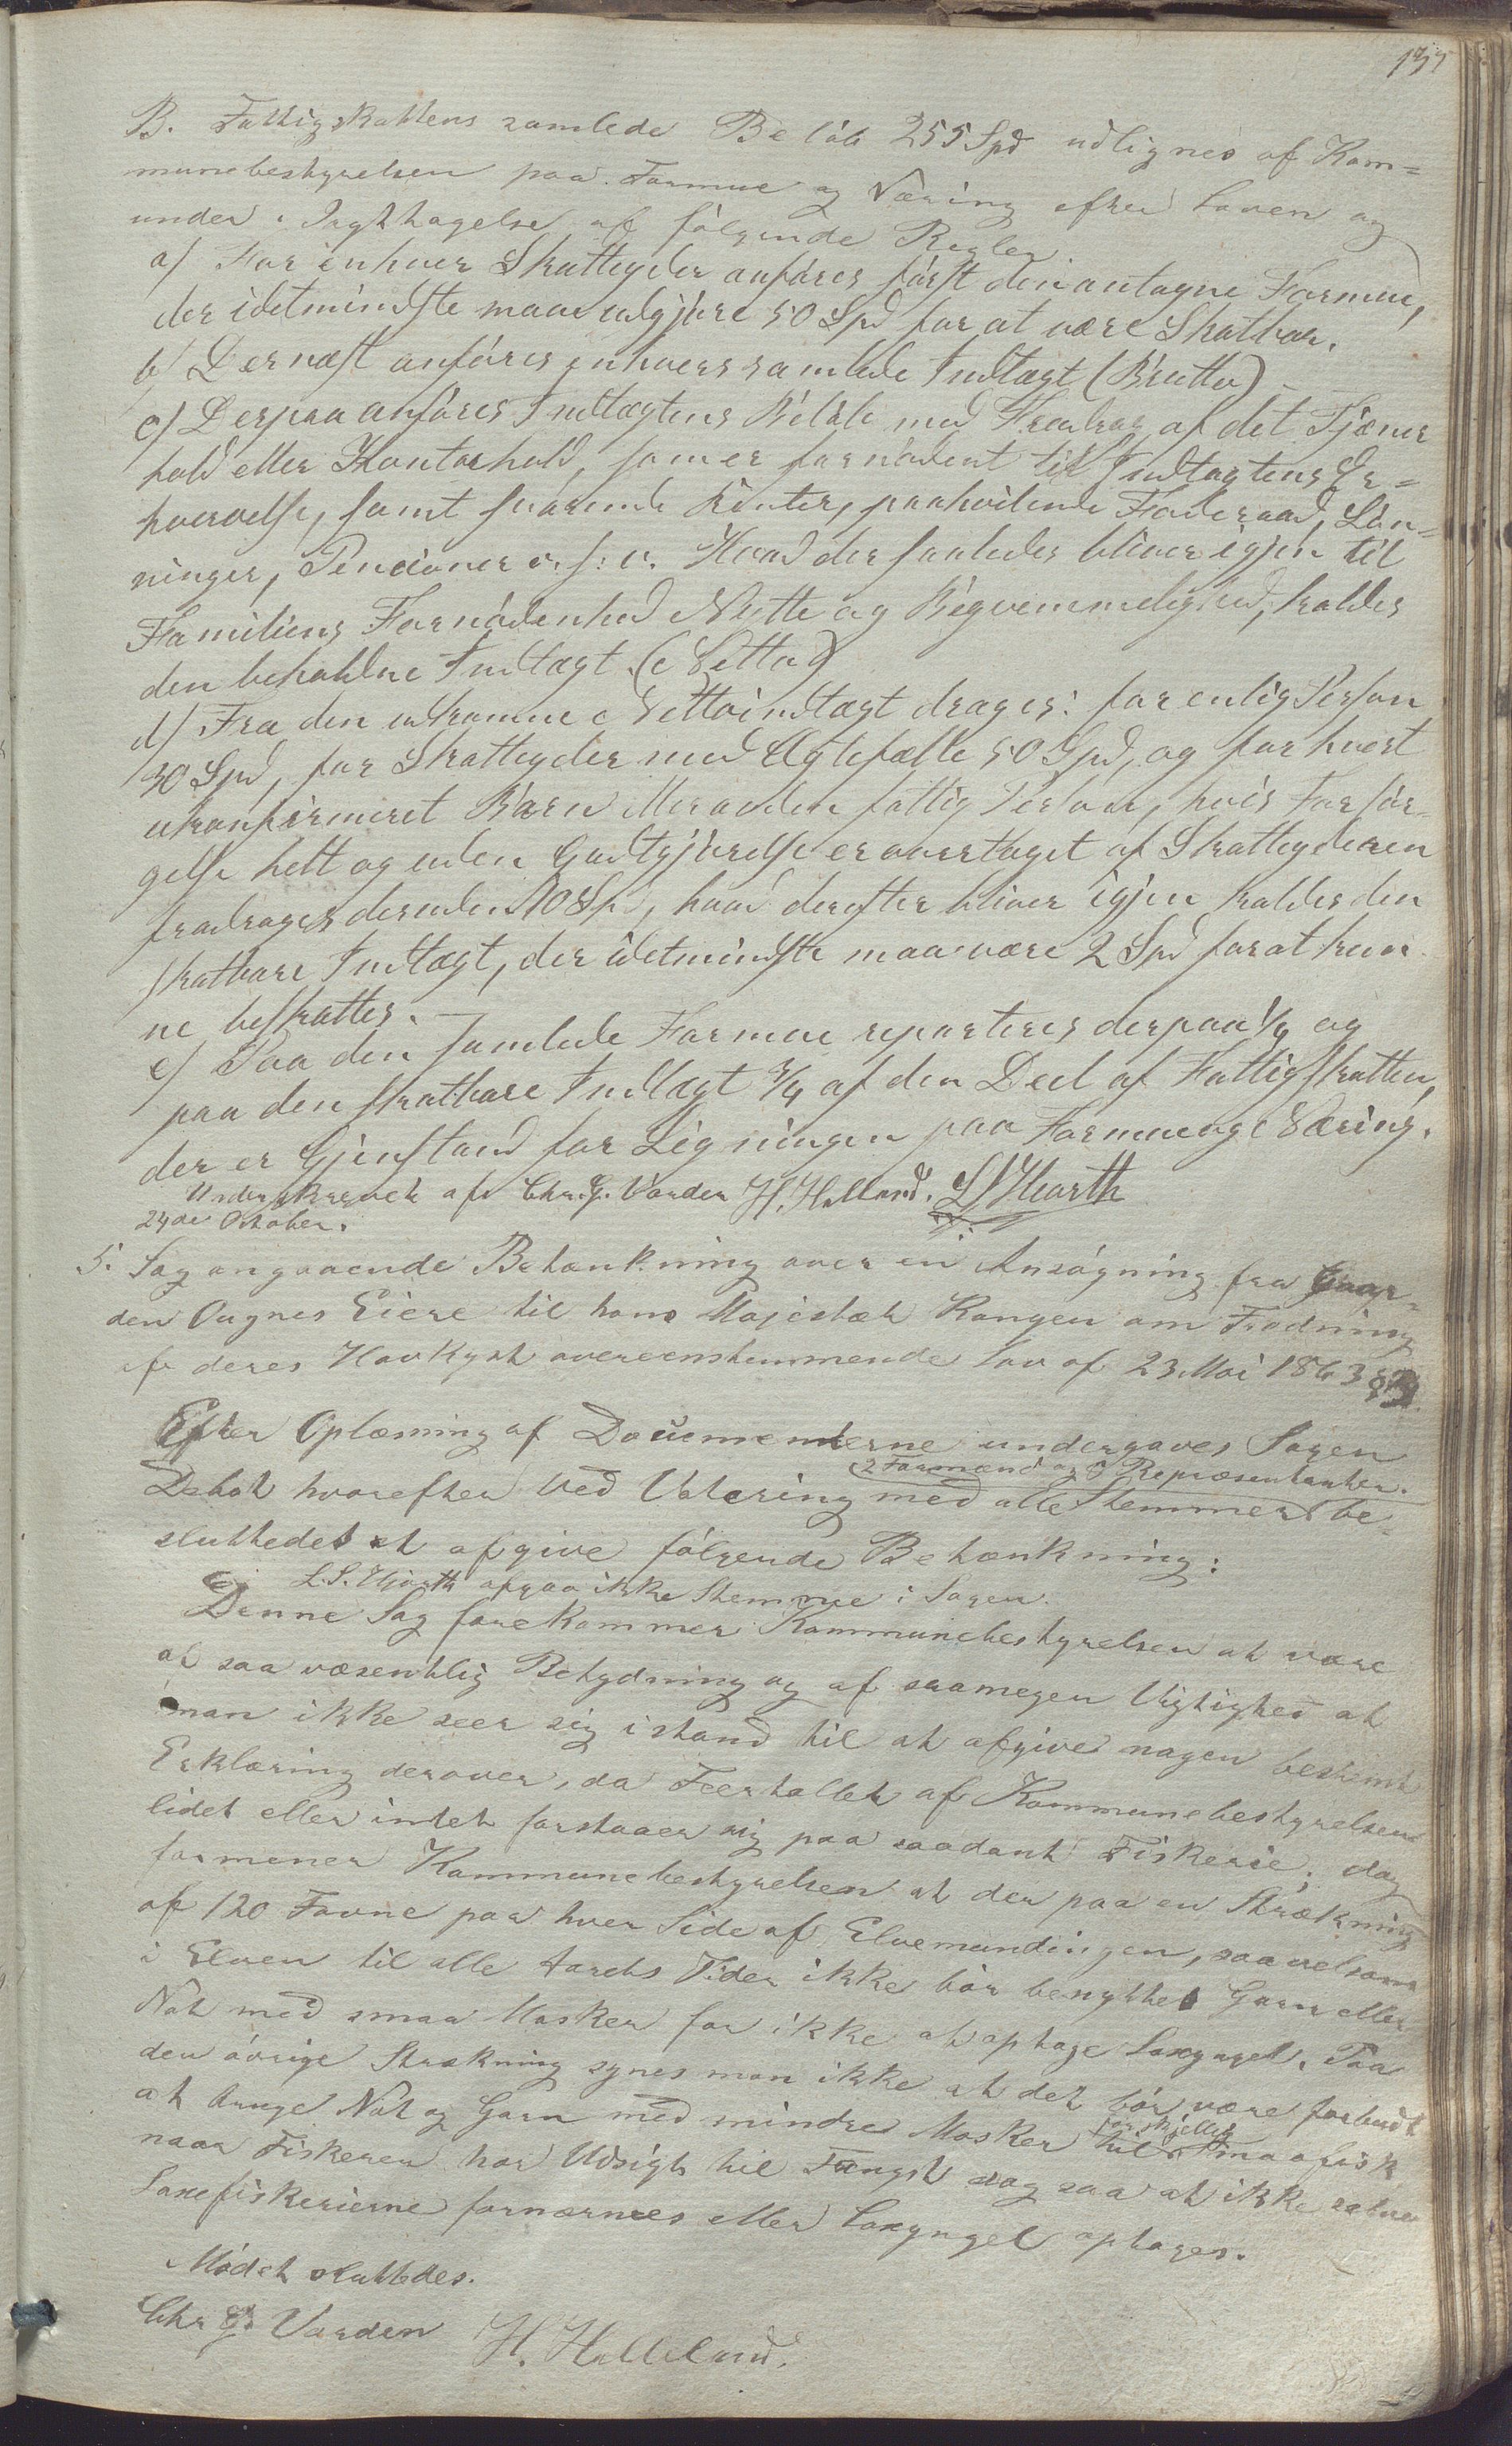 137
B. Fattigskattens samlede Beløb 255 Spd udlignes af Kom=
munebestyrelsen paa Formue og Næring efter Loven og
under Iagttagelse af følgende Regler
a) For enhver Skatteyder anføres først den antagne Formue,
der idetmindste maa udgjøre 50 Spd for at være Skatbar.
b) Dernæst anføres enhvers samlede Indtægt (Brutto) –
c) Derpaa anføres Indtægtens Beløb med Fradrag af det Tjener
hold eller Kontorhold, som er fornødent til Indtægtens Er=
hvervelse, samt svarende Renter, paahvilende Føderaad, Løn=
ninger, Pensioner o. s. v. Hvad der saaledes bliver igjen til
Familiens Fornødenhed Nytte og Beqvemmelighed, kaldes
den beholdne Indtægt. (Netto)
d) Fra den udkomne Nettoindtægt drages: for enlig Person
30 Spd, for Skatteyder med Ægtefælle 50 Spd, og for hvert
ukonfirmeret Barn eller anden fattig Person, hvis Forsør=
gelse helt og uden Godtgjørelse er overtaget af Skatteyderen
fradrages desuden 10 Sp, hvad derefter bliver igjen kaldes den
skatbare Indtægt, der idetmindste maa være 2 Spd for at kun
ne beskattes. –
e) Paa den samlede Formue reparteres derpaa 1/4 og
paa den skatbare Indtægt 3/4 af den Deel af Fattigskatten,
der er Gjenstand for Ligningen paa Formue og Næring.
Underskrevet af Chr. G. Varden H. Helland. L S Hiorth
24de Oktober.
5. Sag angaaende Betænkning over en Ansøgning fra Gaar=
den Ougnes Eiere til hans Majestæt Kongen om Fredning
af deres Havkyst overeenstemmende Lov af 23 Mai 1863 §
Efter Oplæsning af Documenterne undergaves Sagen
2 Formænd og 5 Repræsentanter.
Debat hvorefter ved Votering med alle Stemmer be=
sluttedes at afgive følgende Betænkning:
L. S. Hiorth afgav ikke Stemme i Sagen.
Denne Sag forekommer Kommunebestyrelsen at være
af saa væsentlig Betydning og af saamegen Vigtighed at
man ikke seer sig istand til at afgive nogen bestemt
Erklæring derover, da Feertallet af Kommunebestyrelsen
lidet eller intet forstaaer sig paa saadant Fiskerie; dog
formener Kommunebestyrelsen at der paa en Strækning
af 120 Favne paa hver Side af Elvemundingen, saavelsom
i Elven til alle Aarets Tider ikke bør benyttes Garn eller
Not med smaa Masker for ikke at optage Laxyngel. Paa
den øvrige Strækning synes man ikke at det bør være forbudt
at bruge Not og Garn med mindre Masker til Smaafisk
forskjellig
naar Fiskeren har Udsigt til Fangst dog saa at ikke
Laxefiskerierne fornærmes eller Laxyngel optages.
Mødet sluttedes.
Chr G. Varden H. Helleland.